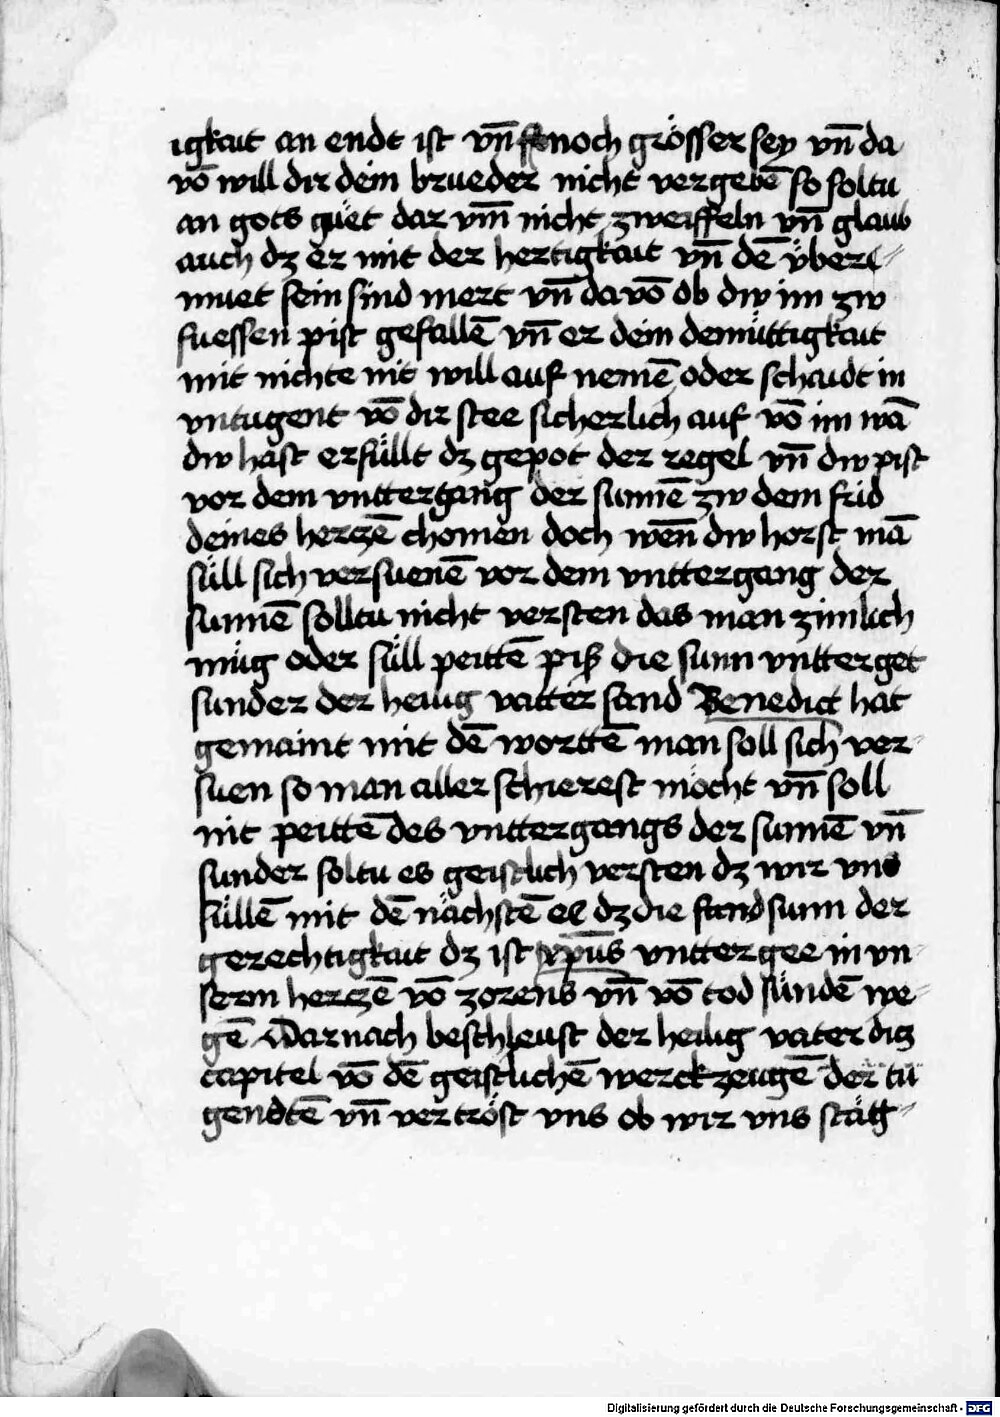 igkait an endt ist vn̄ noch grösser sey vn̄ da
vō will dir dein brueder nicht vergebē so soltu
an gots güet dar vm̄ nicht zweiffeln vn̄ glaub
auch dz er mit der hertigkait vn̄ dē über⸗
muet sein sind mert vn̄ da vō ob dw im zw
fuessen pist gefallē vn̄ er dein demüttigkait
mit nichte nit will auf nemē oder schaidt in
vntugent vō dir stee sicherlich auf vō im wā
dw hast erfüllt dz gepot der regel vn̄ dw pist
vor dem vnttergang der sunnē zw dem frid
deines herczē chomen doch wēn dw horst mā
süll sich versuenē vor dem vnttergang der
sunnē solltu nicht versten das man zimlich
müg oder süll peittē piß die sunn vntterget
sunder der heilig vatter sand Benedict hat
gemaint mit dē worttē man soll sich ver⸗
suen so man aller schierest möcht vn̄ soll
nit peittē des vnttergangs der sunnē vn̄
sunder soltu es geistlich versten dz wir vns
süllē mit dē nächstē ee dz die sunn der
gerechtigkait dz ist xp̄us vnttergee in vn⸗
serm herczē vō zorens vn̄ vō tod sündē we⸗
gē Darnach beschleust der heilig vater dicz
capitel vō dē geistlichē werckzeugē der tu
gendtē vn̄ vertröst vns ob wir vns stät⸗